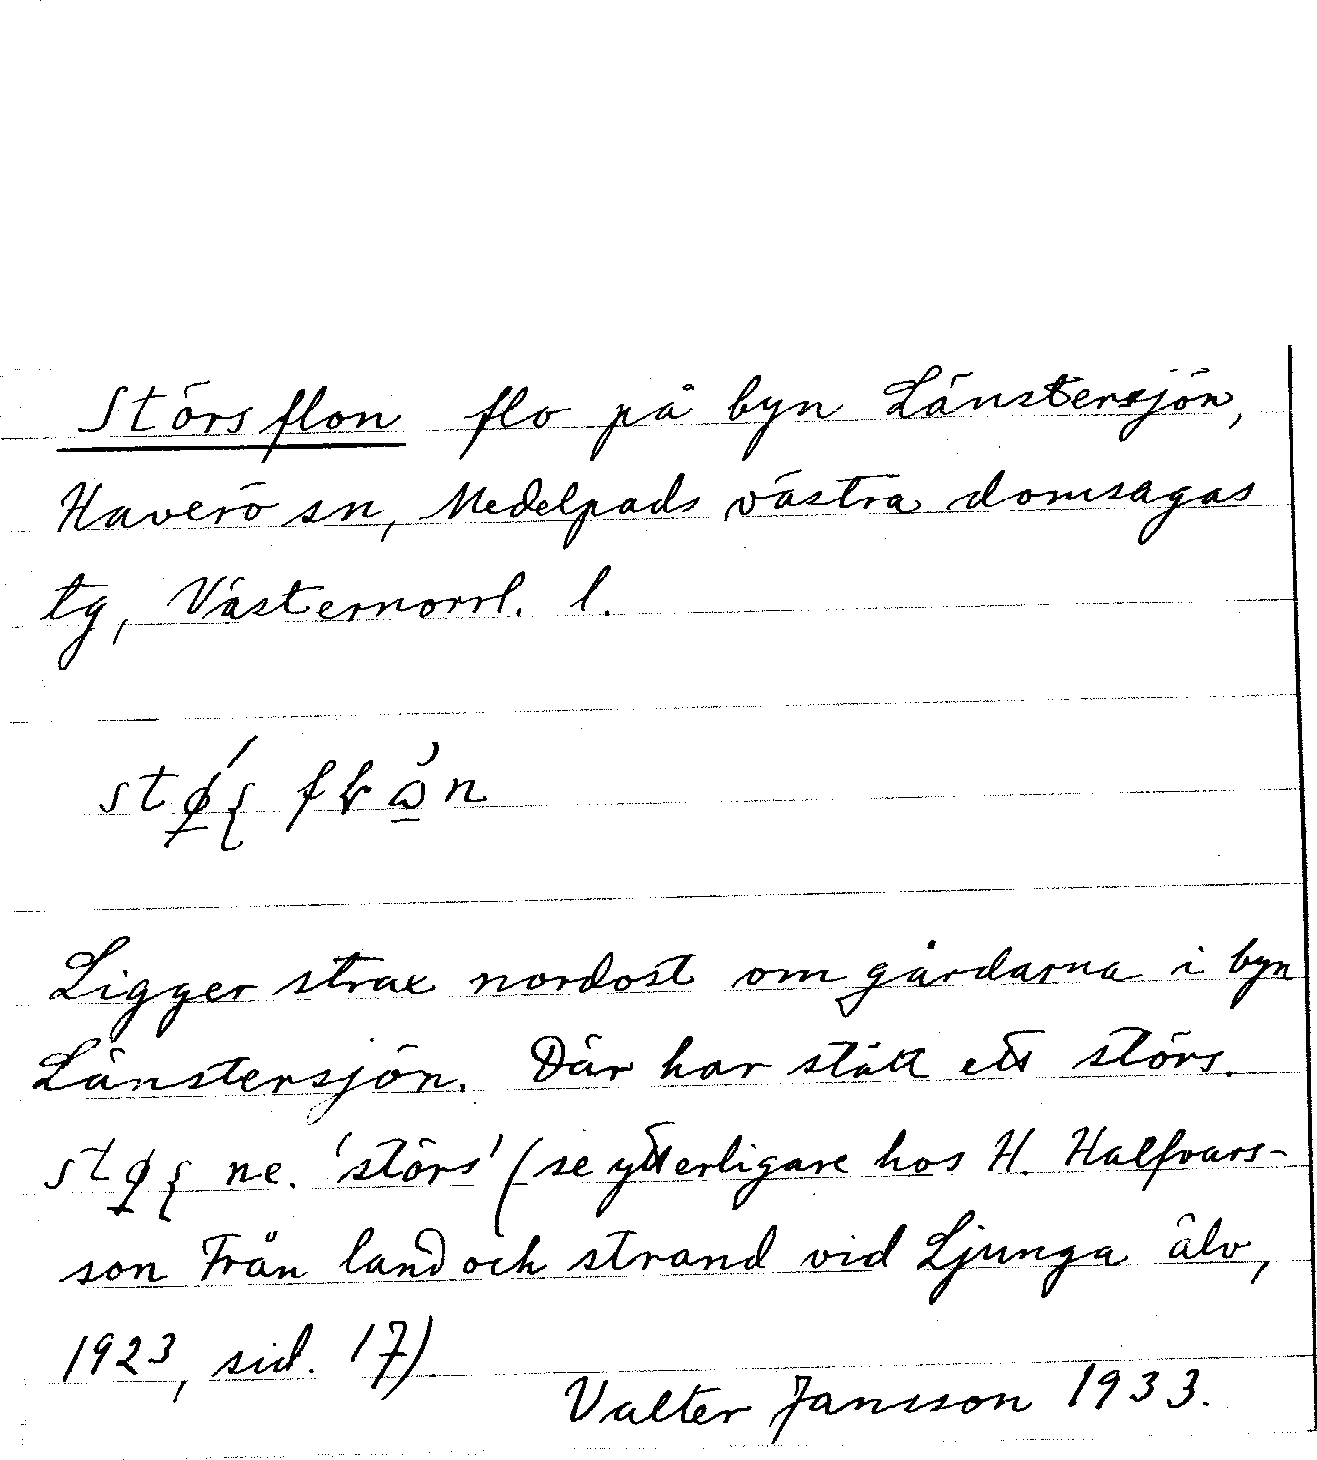 Störsflon flo på byn Länstersjön,
Haverö sn, Medelpads västra domsagas
tg, Västernorrl. l.
Ligger strax nordost om gårdarna i byn
Länstersjön. Där har stått ett störs.
ne. 'störs' (se ytterligare hos H. Halfvars-
son Från land och strand vid Ljunga älv,
1923, sid. 17)
Valter Jansson 1933.